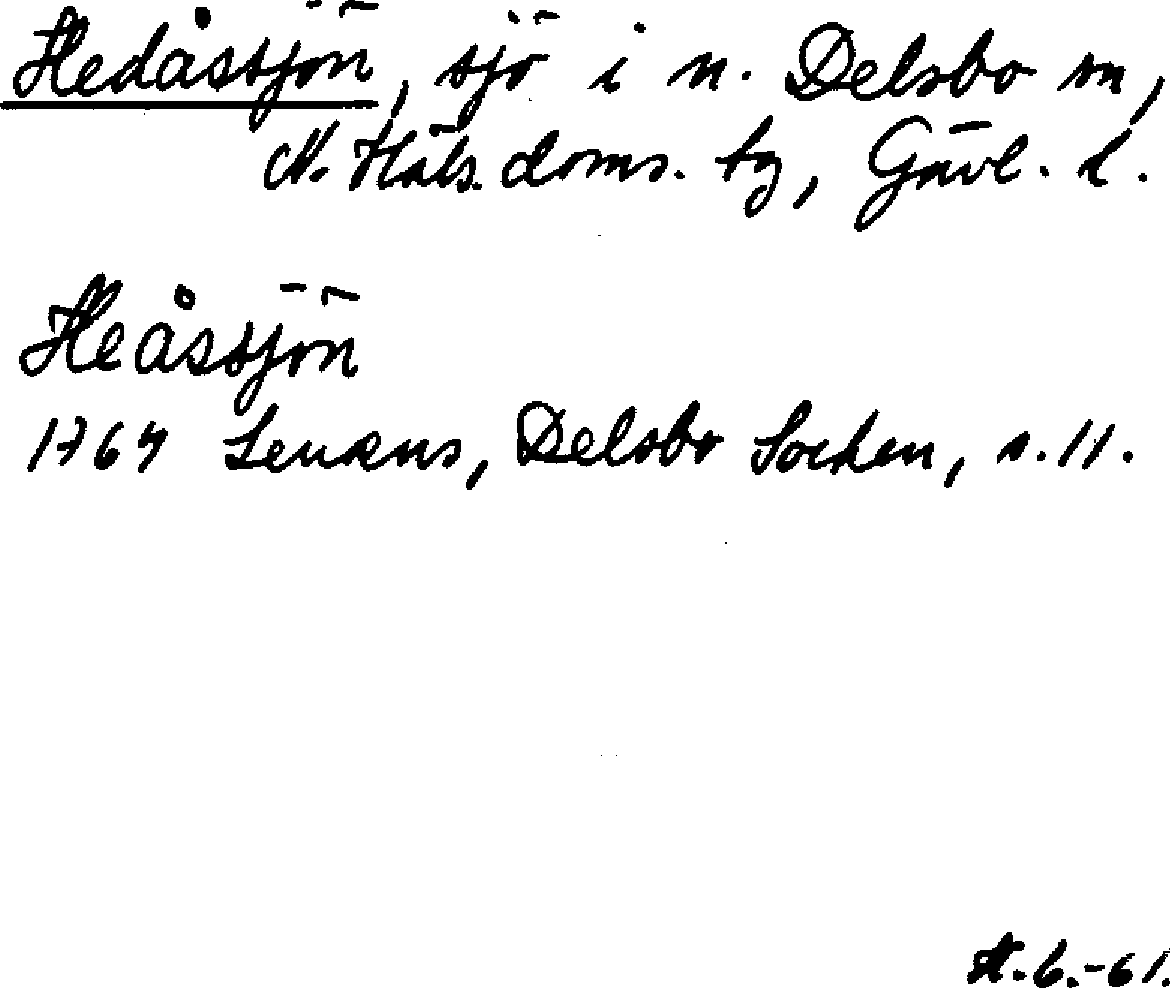 Hedåssjön, sjö i n. Delsbo sn,
N. Häls. doms. tg, Gävl. l.
Heåssjön
1764 Lenæus, Delsbo Socken, s. 11.
H.6.-61.